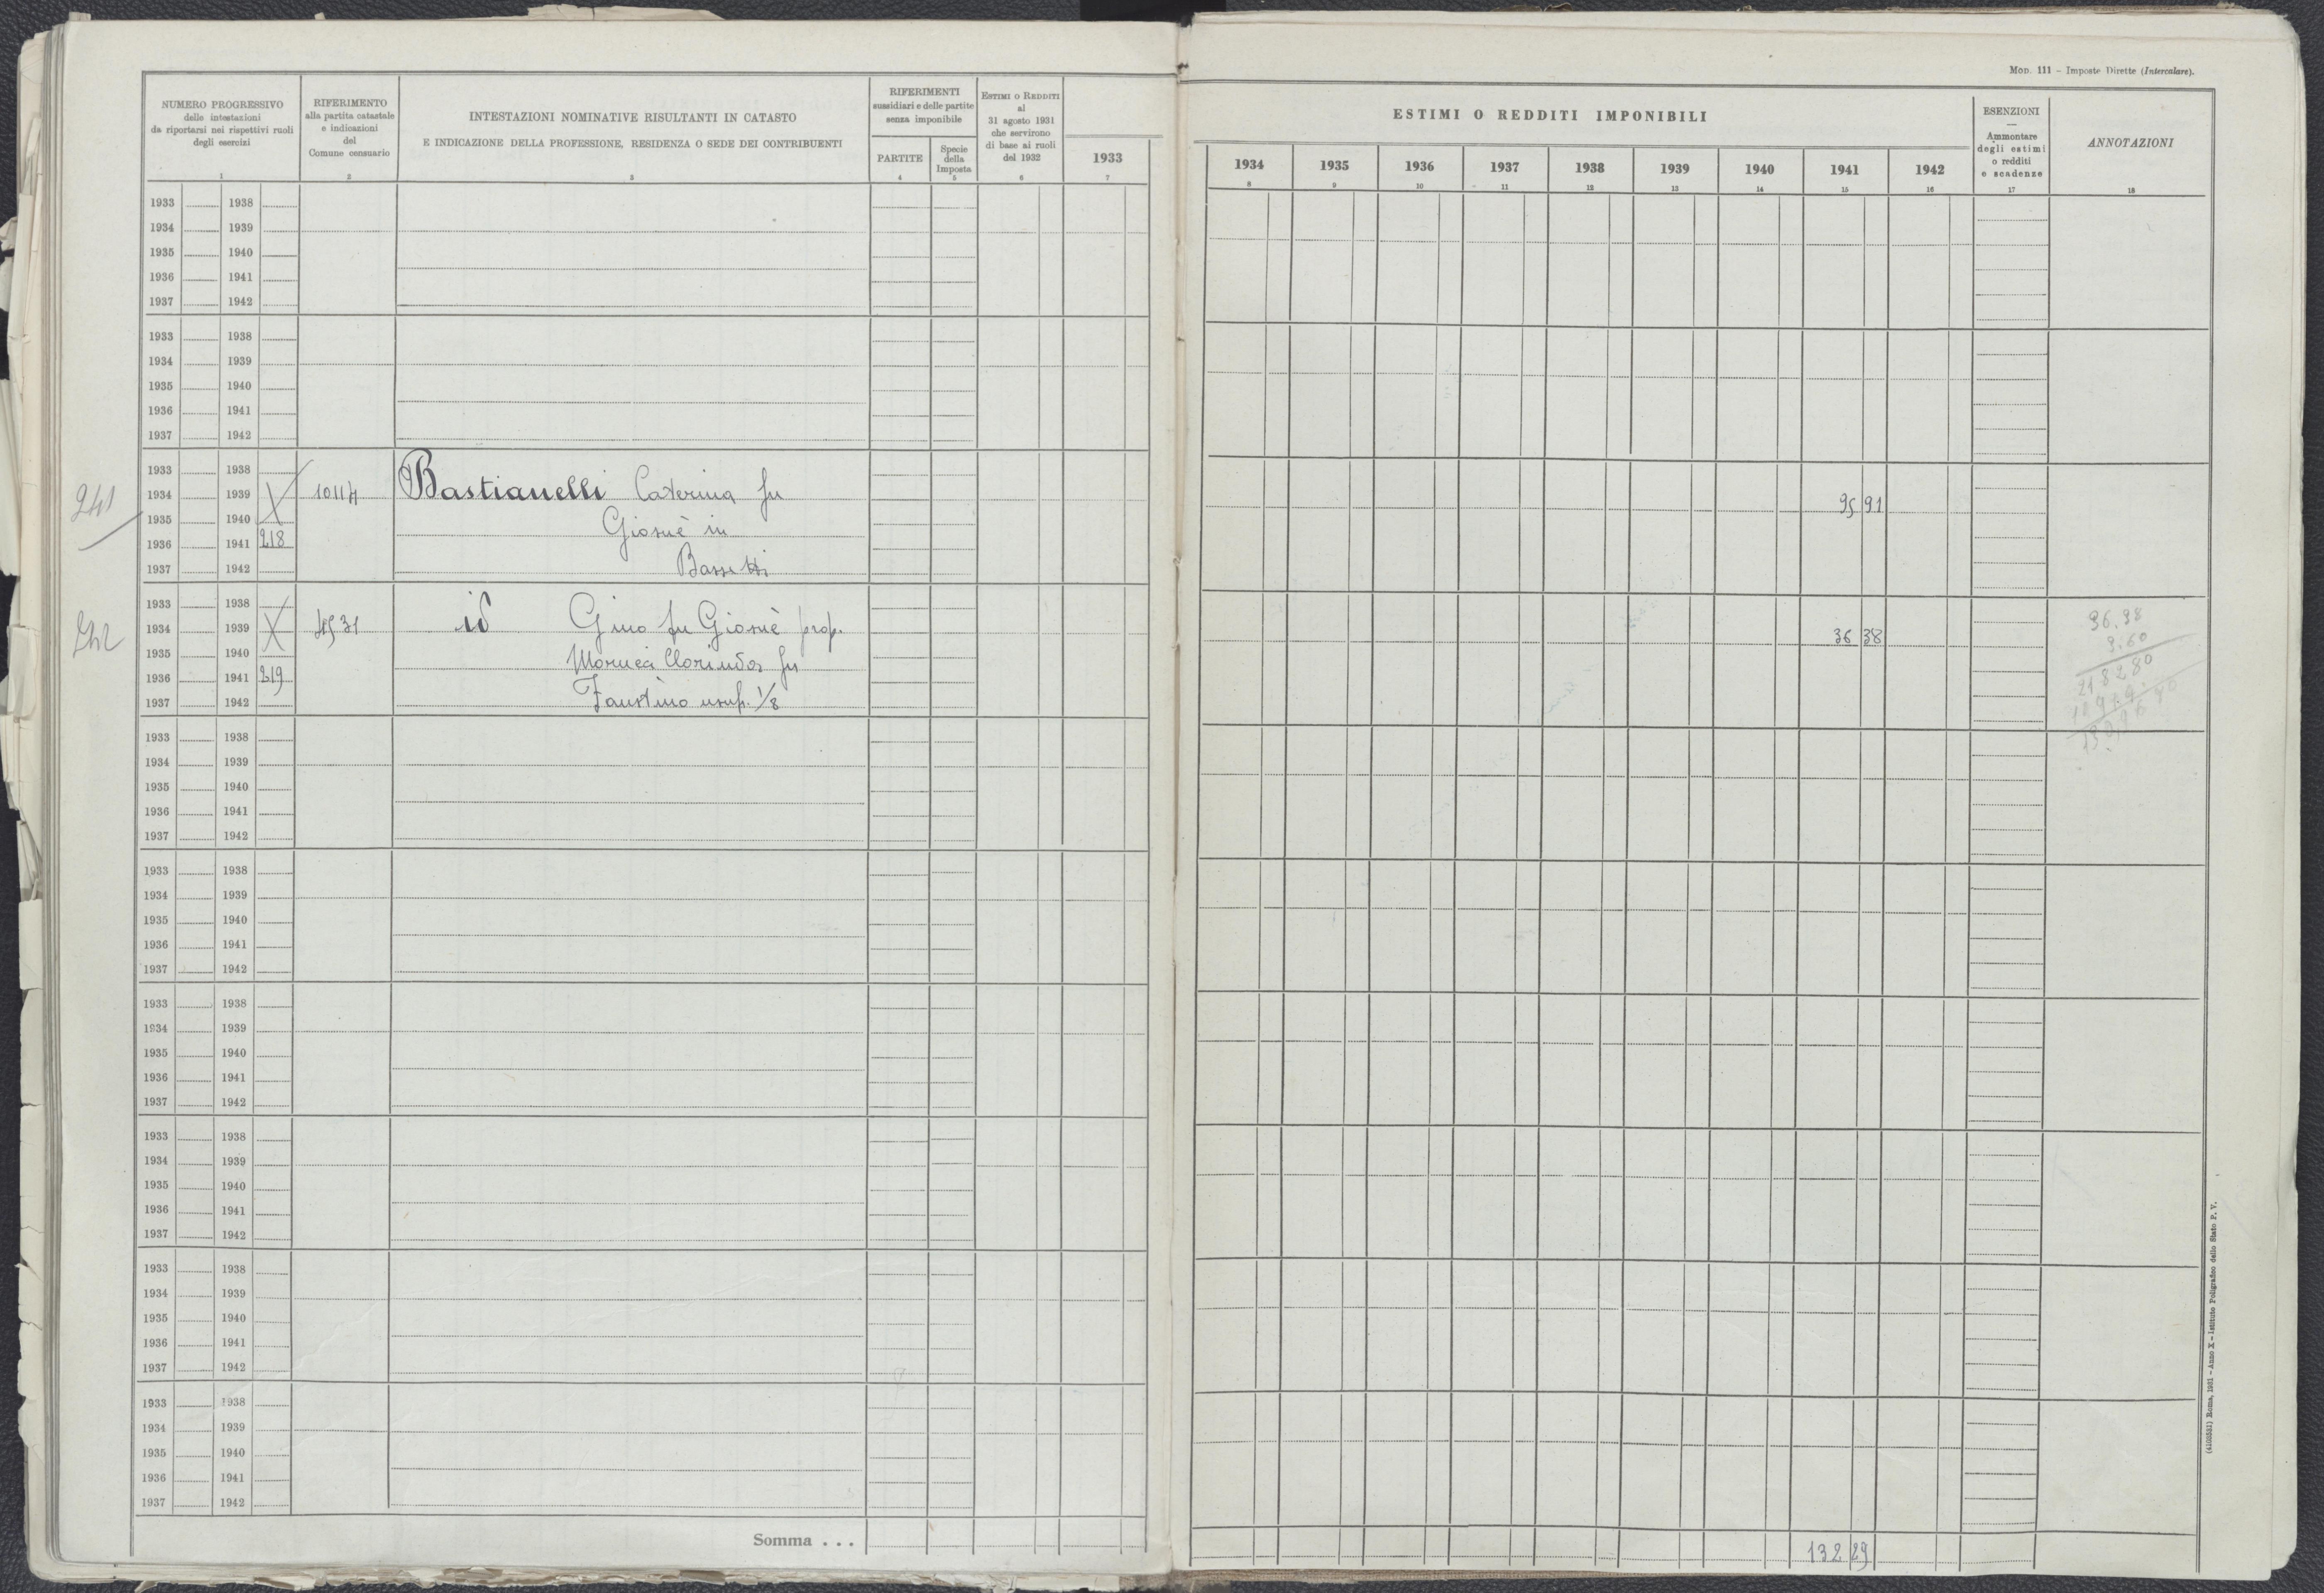 Mod. 111 – Imposte Dirette (Intercalare).
NUMERO PROGRESSIVO
delle intestazioni
da riportarsi nei rispettivi ruoli
degli esercizi
1
RIFERIMENTO
alla partita catastale
e indicazioni
del
Comune censuario
2
INTESTAZIONI NOMINATIVE RISULTANTI IN CATASTO
E INDICAZIONE DELLA PROFESSIONE, RESIDENZA O SEDE DEI CONTRIBUENTI
3
RIFERIMENTI
sussidiari e delle partite
senza imponibile
PARTITE
4
Specie
della
Imposta
5
ESTIMI O REDDITI
al
31 agosto 1931
che servirono
di base ai ruoli
del 1932
6
1933
7
ESTIMI O REDDITI IMPONIBILI
1934 1935 1936 1937 1938 1939 1940 1941 1942
8 9 10 11 12 13 14 15 16
ESENZIONI
—
Ammontare
degli estimi
o redditi
e scadenze
17
ANNOTAZIONI
18
1933 1938
1934 1939
1935 1940
1936 1941
1937 1942
1933 1938
1934 1939
1935 1940
1936 1941
1937 1942
241
1933 1938
1934 1939 10114 Bastianelli Caterina fu 95 91
1935 1940 Giosuè in
1936 1941 218
1937 1942 Bassetti
242
1933 1938
1934 1939 4531 id Gino fu Giosuè prop. 36 38
1935 1940 Clorinda fu
1936 1941 219
1937 1942 Faustino usuf. 1/8
36.38
1933 1938
1934 1939
1935 1940
1936 1941
1937 1942
1933 1938
1934 1939
1935 1940
1936 1941
1937 1942
1933 1938
1934 1939
1935 1940
1936 1941
1937 1942
1933 1938
1934 1939
1935 1940
1936 1941
1937 1942
1933 1938
1934 1939
1935 1940
1936 1941
1937 1942
1933 1938
1934 1939
1935 1940
1936 1941
1937 1942
Somma . . . 132 29
Roma, 1931 – Anno X – Istituto Poligrafico dello Stato P. V.